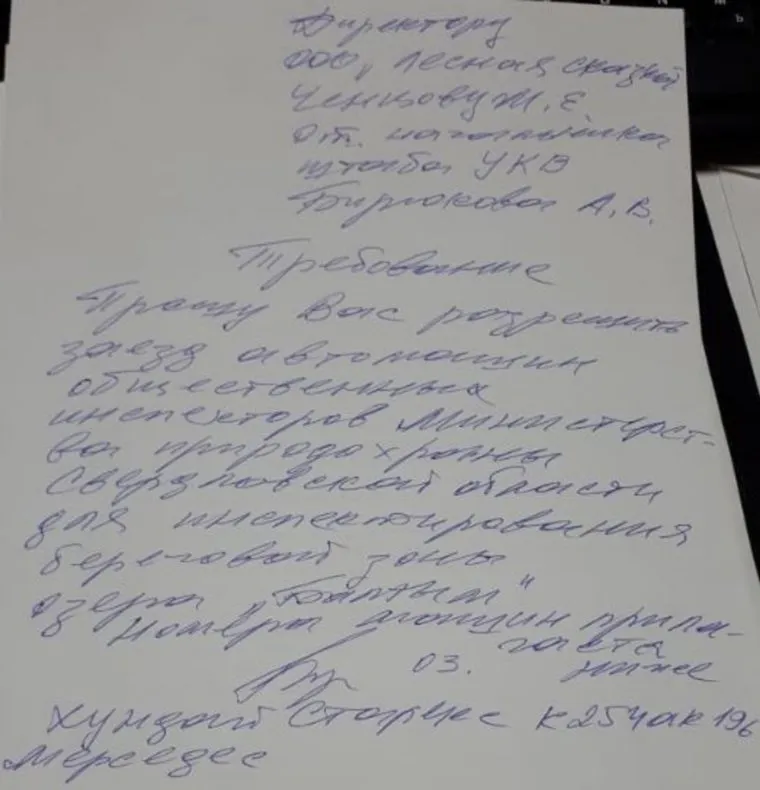 Директору
ООО „Лесная сказка
Ченцову М. Е.
от. начальника
штаба УКВ
Бирюкова А. В.
Требование
Прошу Вас разрешить
заезд автомашин
общественных
инспекторов Министерст-
ва природохраны
Свердловской области
для инспектирования
береговой зоны
озера „Балтым"
Номера машин прила-
гаета
03. ниже
Хундай Старекс к254ак196
Мерседес